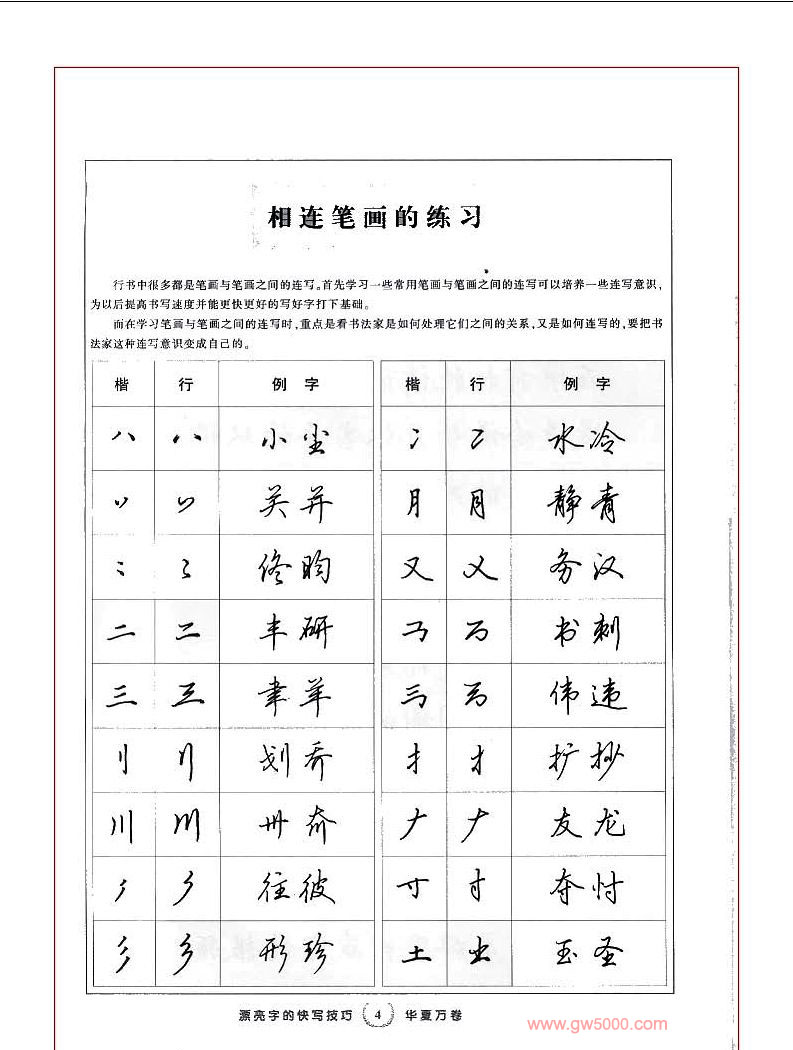 相连笔画的练习
行书中很多都是笔画与笔画之间的连写。首先学习一些常用笔画与笔画之间的连写可以培养一些连写意识,
为以后提高书写速度并能更快更好的写好字打下基础。
而在学习笔画与笔画之间的连写时,重点是看书法家是如何处理它们之间的关系,又是如何连写的,要把书
法家这种连写意识变成自己的。
楷 行 例字 楷 行 例字
小尘 水冷
关并 月 月 静青
佟昀 又 又 务汉
二 二 丰研 书刺
三 三 聿羊 伟违
刂 刂 划乔 扌 扌 扩抄
川 川 卅奔 𠂇 𠂇 友龙
往彼 寸 寸 夺忖
彡 彡 形珍 土 土 玉圣
漂亮字的快写技巧 4 华夏万卷
www.gw5000.com